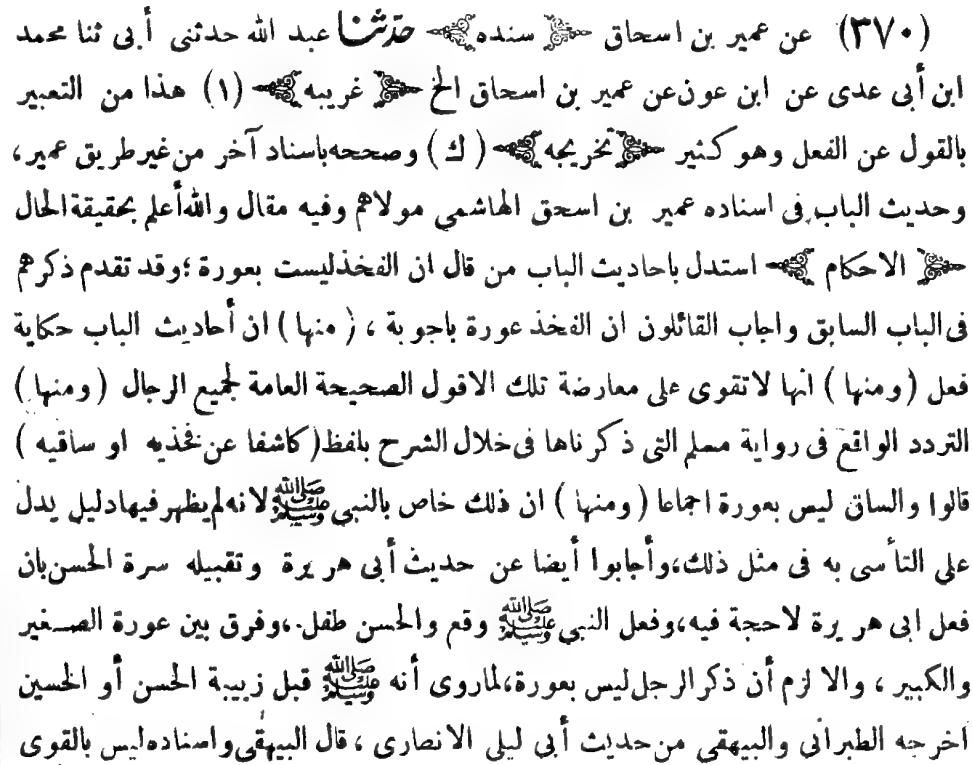 (٣٧٠) عن عمير بن اسحاق ﴿ سنده ﴾ حدّثنا عبد الله حدثنى أبى ثنا محمد
ابن أبى عدى عن ابن عون عن عمير بن اسحاق الخ ﴿ غريبه ﴾ (١) هذا من التعبير
بالقول عن الفعل وهو كثير ﴿ تخريجه ﴾ ( ك ) وصححه باسناد آخر من غير طريق عمير ،
وحديث الباب فى اسناده عمير بن اسحق الهاشمى مولاهم وفيه مقال والله أعلم بحقيقة الحال
﴿ الاحكام ﴾ استدل باحاديث الباب من قال ان الفخذ ليست بعورة ؛ وقد تقدم ذكرهم
فى الباب السابق واجاب القائلون ان الفخذ عورة باجوبة ، ( منها ) ان أحاديث الباب حكاية
فعل ( ومنها ) انها لا تقوى على معارضة تلك الاقول الصحيحة العامة لجميع الرجال ( ومنها )
التردد الواقع فى رواية مسلم التى ذكرناها فى خلال الشرح بلفظ ( كاشفا عن فخذيه او ساقيه )
قالوا والساق ليس بعورة اجماعا ( ومنها ) ان ذلك خاص بالنبى ﷺ لانه لم يظهر فيها دليل يدل
على التأسى به فى مثل ذلك، وأجابوا أيضا عن حديث أبى هريرة وتقبيله سرة الحسن بان
فعل ابى هريرة لاحجة فيه، وفعل النبى ﷺ وقع والحسن طفل، وفرق بين عورة الصغير
والكبير ، والا لزم أن ذكر الرجل ليس بعورة، لماروى أنه ﷺ قبل زبيبة الحسن أو الحسين
اخرجه الطبرانى والبيهقى من حديث أبى ليلى الانصارى ، قال البيهقى واسناده ليس بالقوى